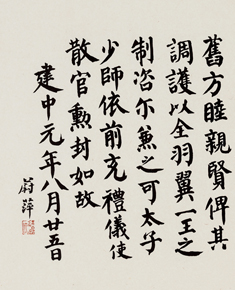 舊方睦親賢俾其
調護以全羽翼一王之
制咨尔兼之可太子
少師依前充禮儀使
散官勳封如故
建中元年八月廿五日
蔚萍